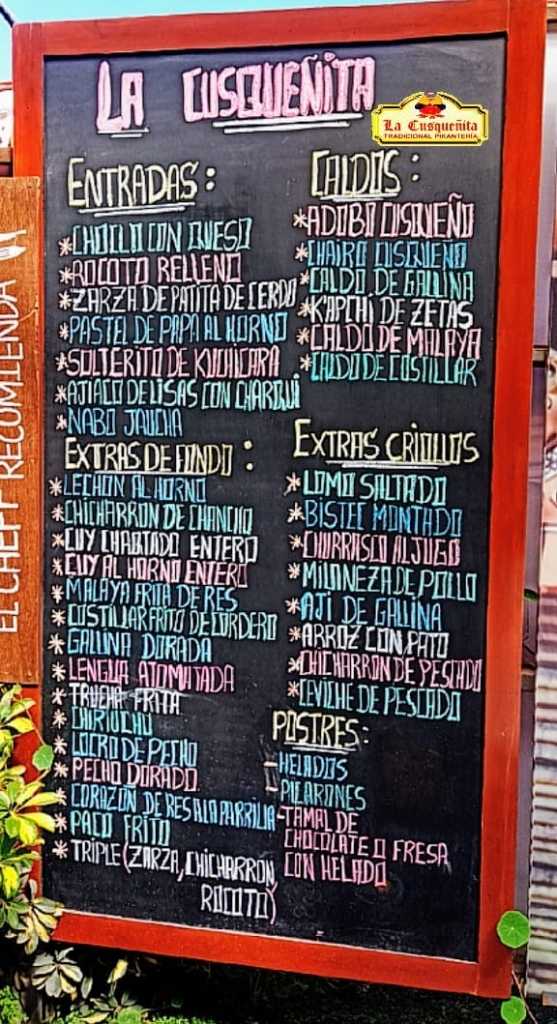 LA CUSQUEÑITA
La Cusqueñita
TRADICIONAL PIKANTERÍA
EL CHEFF RECOMIENDA
ENTRADAS:
*CHOCLO CON QUESO
*ROCOTO RELLENO
*ZARZA DE PATITA DE CERDO
*PASTEL DE PAPA AL HORNO
*SOLTERITO DE KUCHICARA
*AJIACO DE LISAS CON CHARQUI
*NABO JAUCHA
EXTRAS DE FONDO:
*LECHON AL HORNO
*CHICHARRON DE CHANCHO
*CUY CHACTADO ENTERO
*CUY AL HORNO ENTERO
*MALAYA FRITA DE RES
*COSTILLAR FRITO DE CORDERO
*GALLINA DORADA
*LENGUA ATOMATADA
*TRUCHA FRITA
*CHIRIUCHU
*LOCRO DE PECHO
*PECHO DORADO
*CORAZÓN DE RES A LA PARRILLA
*PACO FRITO
*TRIPLE (ZARZA, CHICHARRON
ROCOTO)
CALDOS:
*ADOBO CUSQUEÑO
*CHAIRO CUSQUEÑO
*CALDO DE GALLINA
*K'APCHI DE ZETAS
*CALDO DE MALAYA
*CALDO DE COSTILLAR
EXTRAS CRIOLLOS
*LOMO SALTADO
*BISTEC MONTADO
*CHURRASCO AL JUGO
*MILANEZA DE POLLO
*AJI DE GALLINA
*ARROZ CON PATO
*CHICHARRON DE PESCADO
*CEVICHE DE PESCADO
POSTRES:
-HELADOS
-PICARONES
-TAMAL DE
CHOCOLATE O FRESA
CON HELADO